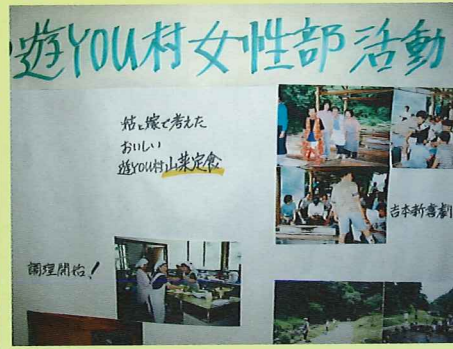 遊YOU村女性部活動
姑と嫁で考えた
おいしい
遊YOU村山菜定食
吉本新喜劇
調理開始!